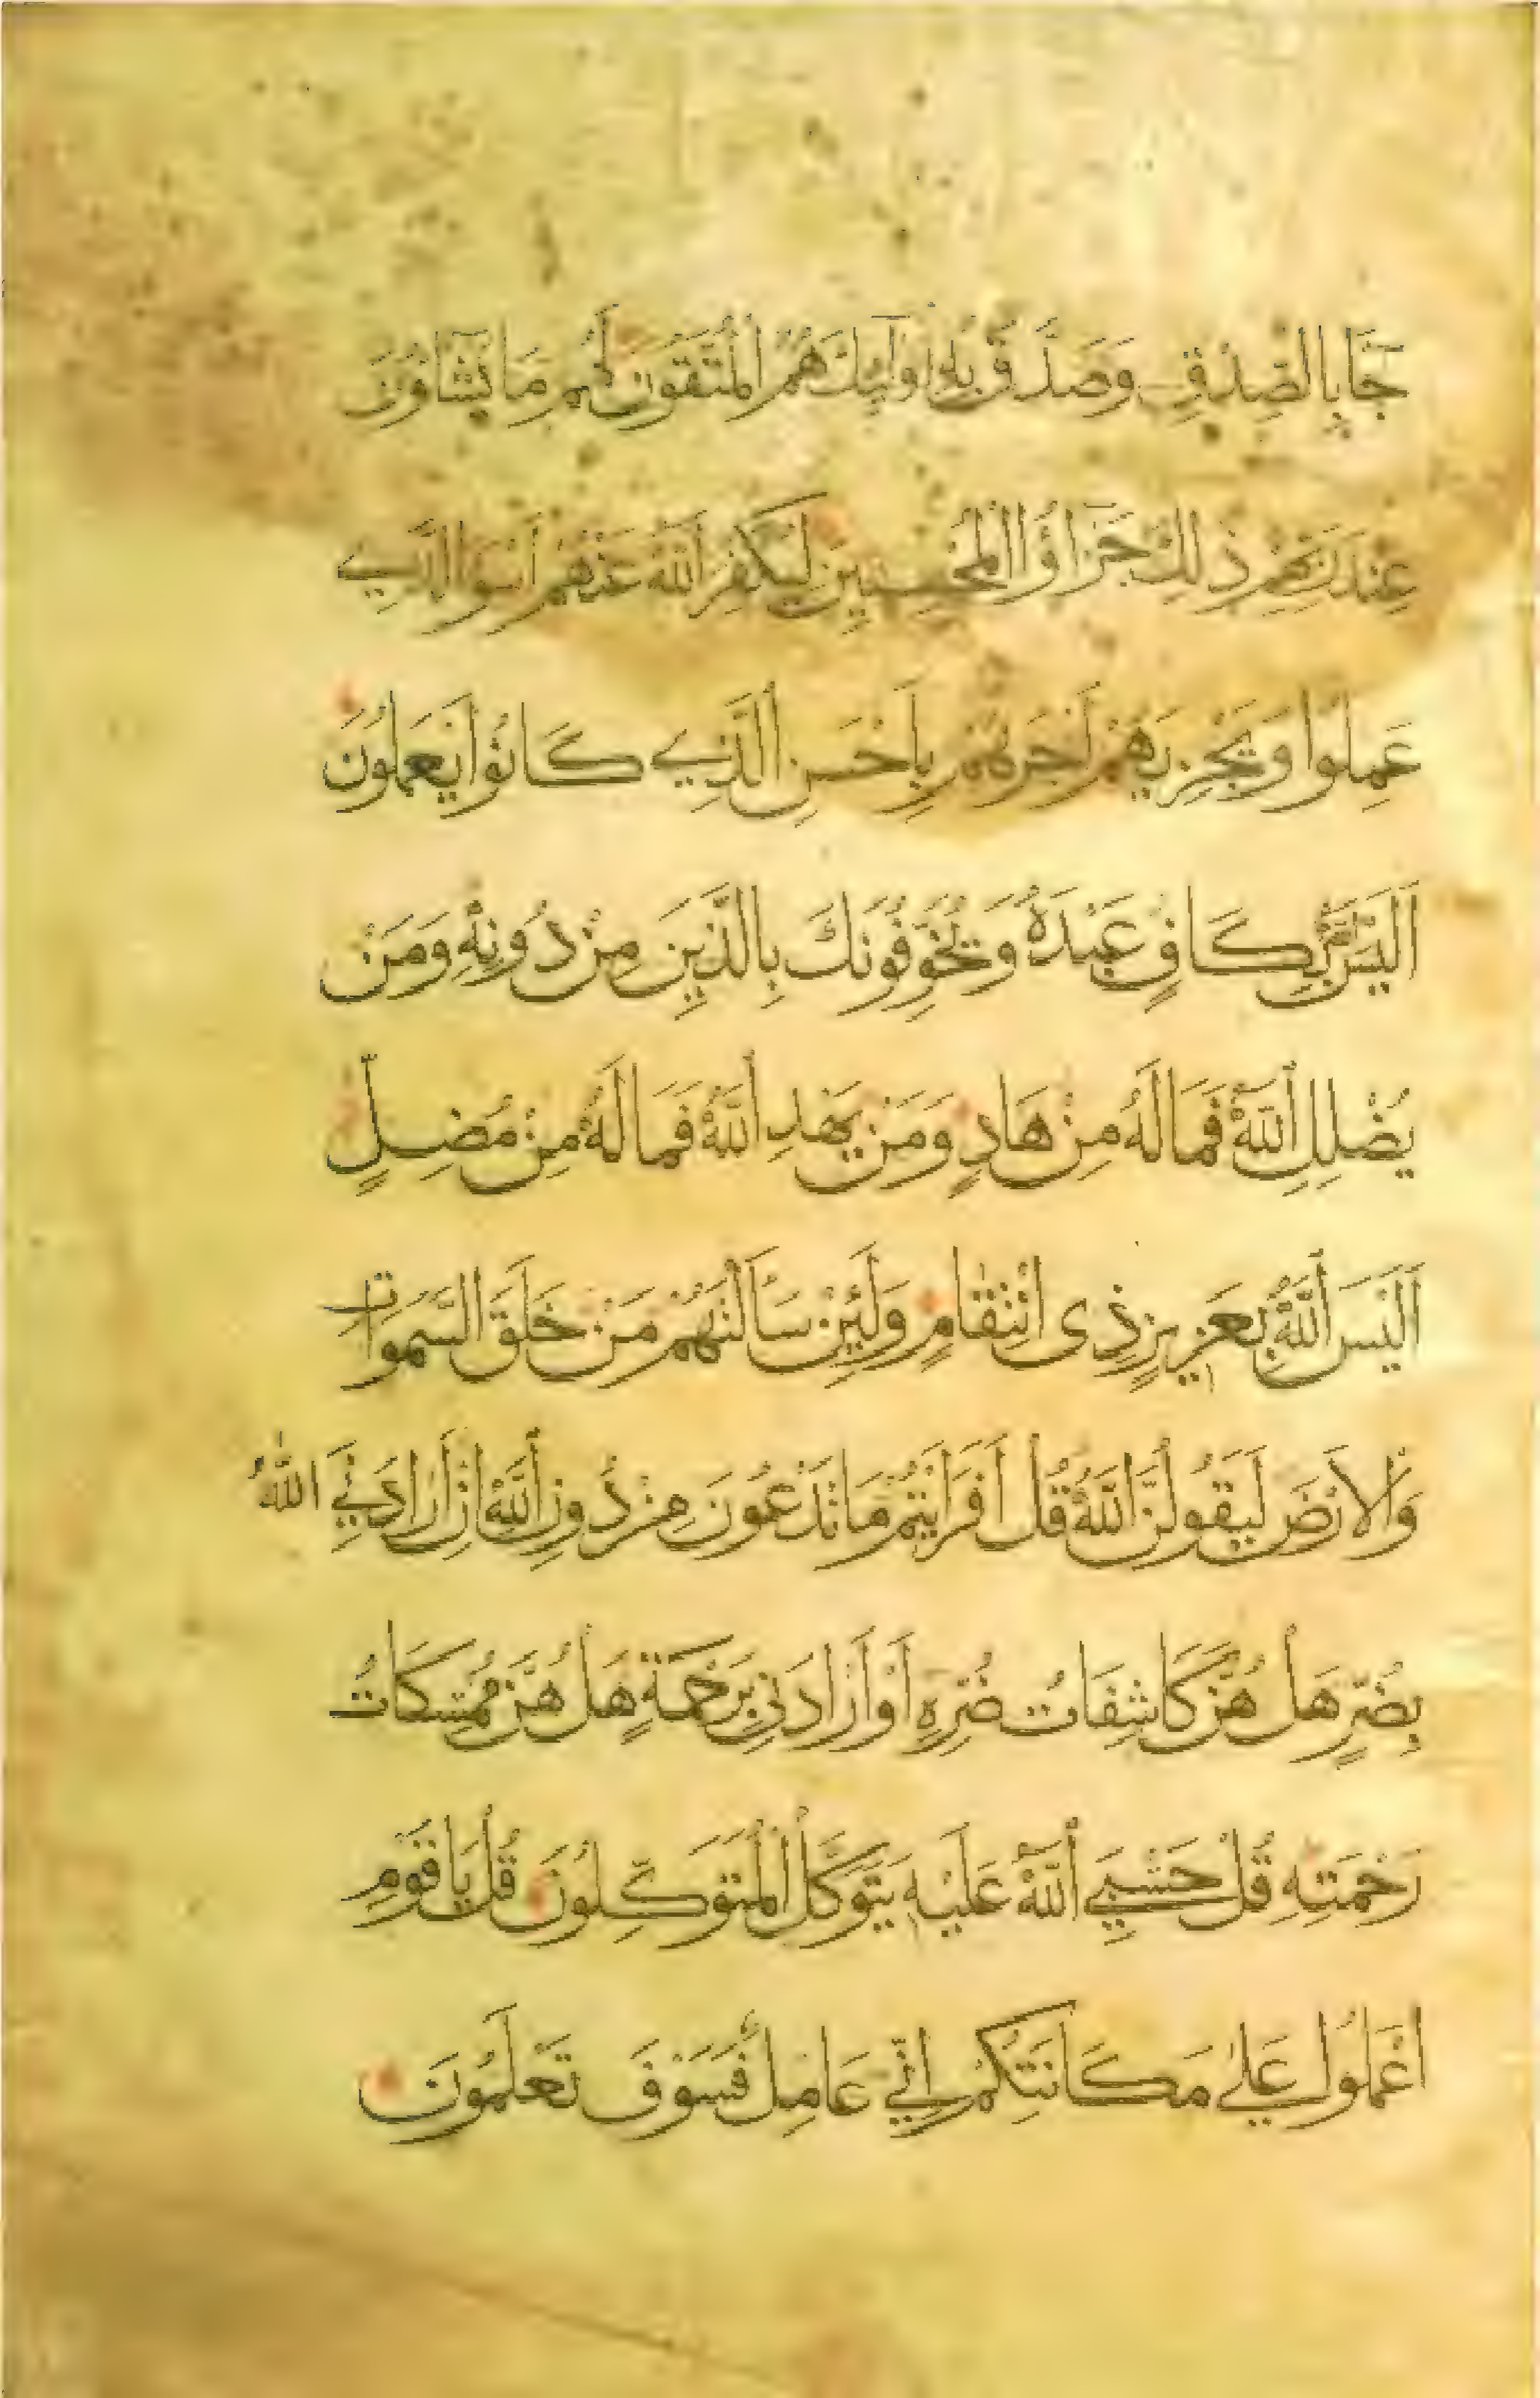 جَآ بِالصِّدْقِ وَصَدَّقَ بِهِ اُولَٓئِكَ هُمُ الْمُتَّقُونَ لَهُمْ مَا يَشَاؤُنَ
عِنْدَ رَبِّهِمْ ذَلِكَ جَزَاؤُا الْمُحْسِنِينَ لِيُكَفِّرَ اللّٰهُ عَنْهُمْ اَسْوَا الَّذِي
عَمِلُوا وَيَجْزِيَهُمْ اَجْرَهُمْ بِاَحْسَنِ الَّذِي كَانُوْا يَعْمَلُوْنَ
اَلَيْسَ بِكَافٍ عَبْدَهُ وَيُخَوِّفُوْنَكَ بِالَّذِيْنَ مِنْ دُونِهِ وَمَنْ
يُضْلِلِ اللّٰهُ فَمَا لَهُ مِنْ هَادٍ وَمَنْ يَهْدِ اللّٰهُ فَمَا لَهُ مِنْ مُضِلٍّ
اَلَيْسَ اللّٰهُ بِعَزِيزٍ ذِى انْتِقَامٍ وَلَئِنْ سَاَلْتَهُمْ مَنْ خَلَقَ السَّمٰوَاتِ
وَالْاَرْضَ لَيَقُولُنَّ اللّٰهُ قُلْ اَفَرَاَيْتُمْ مَا تَدْعُوْنَ مِنْ دُوْنِ اللّٰهِ اِنْ اَرَادَنِيَ اللّٰهُ
بِضُرٍّ هَلْ هُنَّ كَاشِفَاتُ ضُرِّهِ اَوْ اَرَادَنِي بِرَحْمَةٍ هَلْ هُنَّ مُمْسِكَاتُ
رَحْمَتِهِ قُلْ حَسْبِيَ اللّٰهُ عَلَيْهِ يَتَوَكَّلُ الْمُتَوَكِّلُوْنَ قُلْ يَا قَوْمِ
اعْمَلُوْا عَلٰي مَكَانَتِكُمْ اِنِّي عَامِلٌ فَسَوْفَ تَعْلَمُونَ